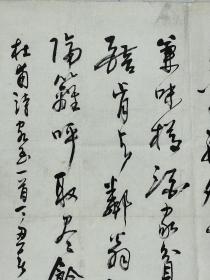 兼味樽酒家貧
醅肯与鄰翁
隔籬呼取尽餘
杜甫詩客至一首